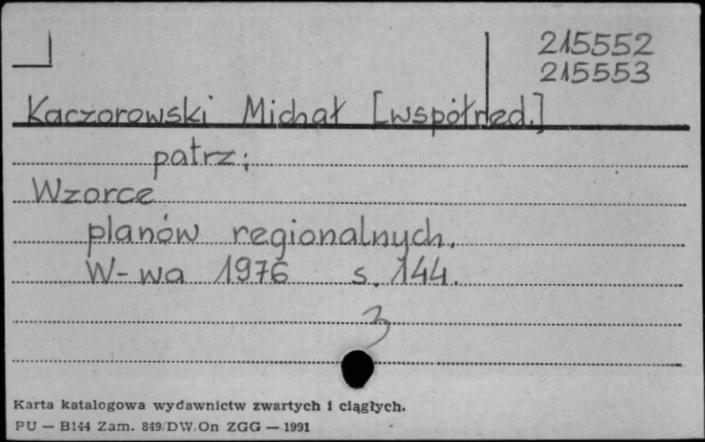 215552
215553
Kaczorowski Michał [współred.]
patrz;
Wzorce
planów regionalnych.
W-wa 1976 s. 144.
3
Karta katalogowa wydawnictw zwartych i ciągłych.
PU — B144 Zam. 849/DW/On ZGG — 1991